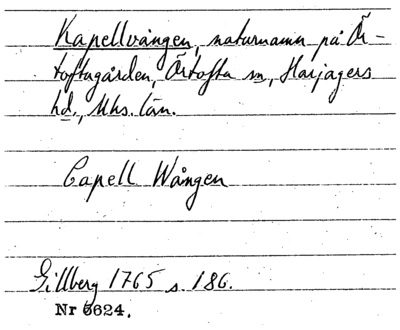 Kapellvången, naturnamn på Ör-
toftagården, Örtofta sn, Harjagers
hd., Mhs. län.
Capell Wången
Gillberg 1765 s. 186.
Nr 6624.